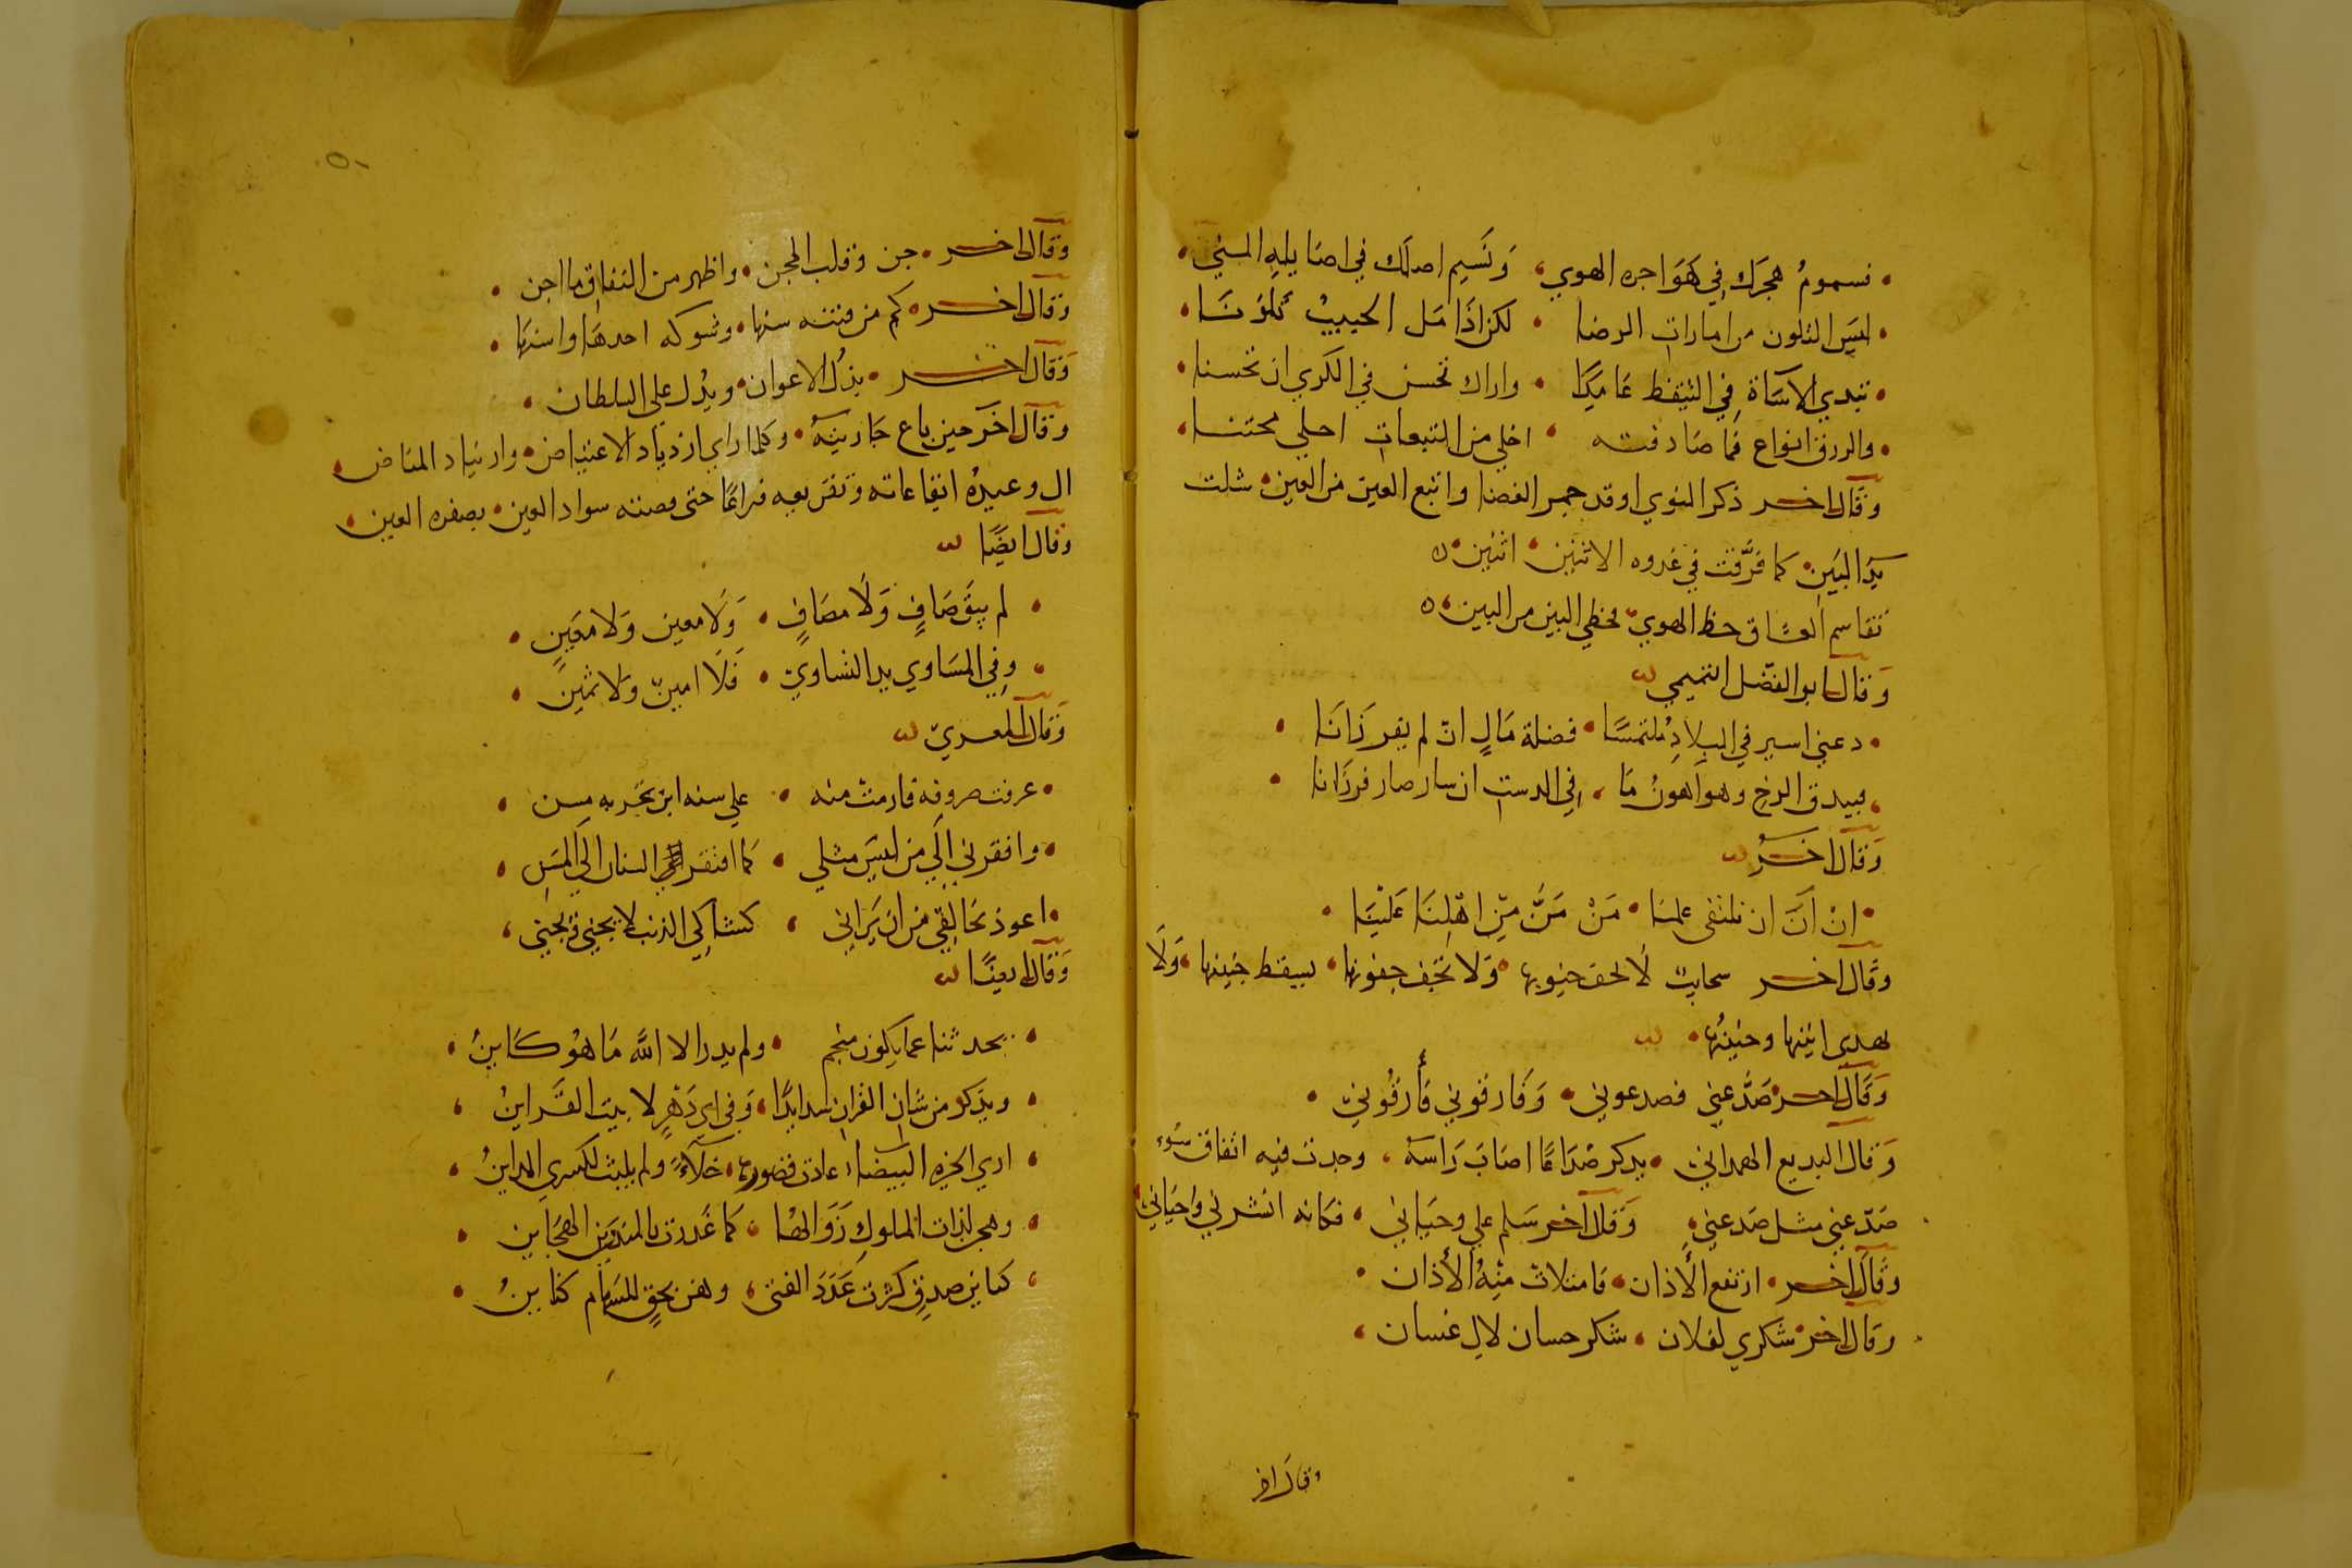 فسمومُ هجرك في هَوَاجره الهوي، وَنَسيم اصلك في اصَايله السني
ليَس التلون من امارات الرضا • لكن اذَا مَل الحبيبْ تلوَنَا
تبدي الاسَاة في التيقظ عَامدًا • واراك تحسن في الكري ان تحسنا
والرزق انواع فما صَادفته • اخلي من التبعات احلي مجتنا
وقَال اخر ذكر النوي اوقد جمر الغضا واتبع العين من العين • شلت
يَد البَين • كما فرَّقت في غدوه الاثنين • اثنين
تقاسم العشاق حظ الهوي فحظي البين من البين
وَقال ابو الفضل التميمي
دعني اسير في البلادِ مُلتمسًا • فضلة مَالٍ ان لم يفر زَانَا
فبيدق الرخ وهو اَهونُ مَا • في الدست ان سار صار فرزَانا
وَقال اخر
ان اَنَّ ان نلتقى علنَا • مَنْ مَنَّ مِن اهْلِنَا عَليَنا
وقَال اخر سحايب لا تحف جنوبها • وَلا تجف جفونها • بسقط جنينها • وَلَا
يهدي انينها وحنينُها
وَقَال اخر • صَدَّ عني فصدعوني • وَفَارقوني فأرقُوني
وَقال البديع الهمداني • يدكر صُدَاعًا اصَابَ رَاسَهُ • وجدت فيه اتفاق سُوء
صَدّعني مثل صَدّ عني وَقال اخر سَلم علي وحيَاني • فكانه انشرني وَاحيَاني
وقَال اخر • ارتفع الأذان • فامتلات منهُ الأذان
وقال اخر • شكري لفلان • شكر حسان لال غسان
وقال اخر
وقَال اخر • جن وقلب المجن • واظهر من النفاق ما اجن
وقَال اخر • كم من فتنه سنها • وشوكه احدهَا واسنهَا
وَقَال اخر • يذلُ الاعوان • ويُدل علي السلطان
وقال اخَر حين باع جَاريَتهُ • وكلما راي ازدياد الاعتياض • وارتياد المتاض
ال وعيدُه ايقاعاته وتفريعه فراغًا حتى فصنته سواد العين • بصفره العين
وقال ايضًا
لم يبقَ صَافٍ وَلَا مصَافٍ • وَلَا معين وَلا مَعَينٍ
وِفي المسَاوي بد التساوي • فَلَا امينٌ ولا ثمَينٌ
وَقال المعري
عرفت صروفه فازمت منه • علي سنه ابن تجَربه مسن
وافقرني الَي مَن ليسَ مثلي • كما افتقر السنان الي المسَن
اعوذ بخَالقي من ان يَراني • كشاكِي الذنب لا يجني وَيجني
وَقال ايضًا
يحدثنا عما يكون منجم • ولم يدر الا الله مَا هُو كَاينُ
ويذكر من شان القران شدايدًا • وَفي اي دَهرٍ لا يبت القَراينُ
اري الحيره البيضاء عادت قصورهَا • خَلَآءً ولم يلبث لكسري المداينُ
وهجن لذات الملوكِ زوَالهَا • كما غَدرت بالمنذرَين الهجَاين
كناين صدقٍ كثرت عَدَدَ الفتى • وهن بحقٍ للسهَام كناينُ